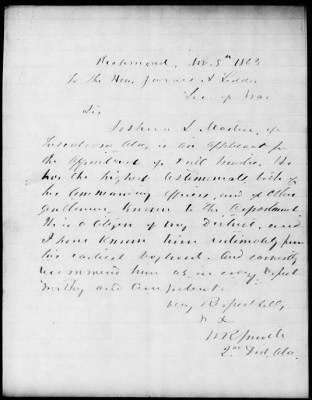 Richmond, Nov. 5th 1863
To the Hon. James A Seddon
Sec of War
Sir,
Joshua L Martin, of
Tuscaloosa Ala, is an applicant for
the appointment of
has the highest testimonials, both of
his Commanding officer, and of other
gentlemen, known to the Department.
He is a citizen of my District, and
I have known him intimately from
his earliest boyhood. And earnestly
recommend him as in every respect
worthy and competent.
Very Respectfully,
W R Smith
2nd Dist, Ala.